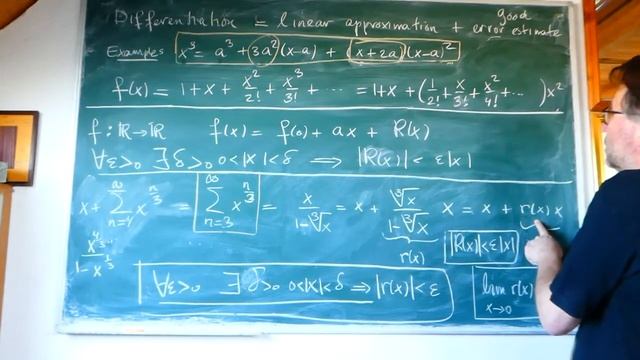 Differentiation = linear approximation + good error estimate
Examples x³ = a³ + 3a²(x-a) + (x+2a)(x-a)²
f(x) = 1+x+ x²/2! + x³/3! + ··· = 1+x+(1/2! + x/3! + x²/4! + ···)x²
f: ℝ→ℝ f(x) = f(0) + ax + R(x)
∀ε>0 ∃δ>0 0<|x|<δ ⟹ |R(x)|<ε|x|
x + ∑_{n=4}^{∞} x^{n/3} = ∑_{n=3}^{∞} x^{n/3} = x/(1-∛x) = x + ∛x/(1-∛x) x = x + r(x) x
x^{4/3}···/(1-x^{1/3}) r(x) |R(x)|<ε|x|
∀ε>0 ∃δ>0 0<|x|<δ ⟹ |r(x)|<ε lim_{x→0} r(x)